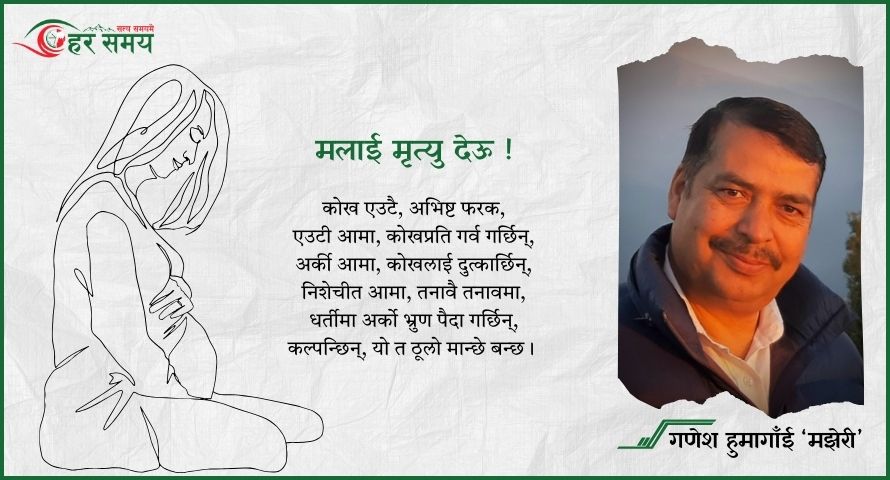 सत्य समयमै
हर समय
मलाई मृत्यु देऊ !
कोख एउटै, अभिष्ट फरक,
एउटी आमा, कोखप्रति गर्व गर्छिन्,
अर्की आमा, कोखलाई दुत्कार्छिन्,
निशेचीत आमा, तनावै तनावमा,
धर्तीमा अर्को भ्रुण पैदा गर्छिन्,
कल्पन्छिन्, यो त ठूलो मान्छे बन्छ ।
गणेश हुमागाँई ‘मझेरी’